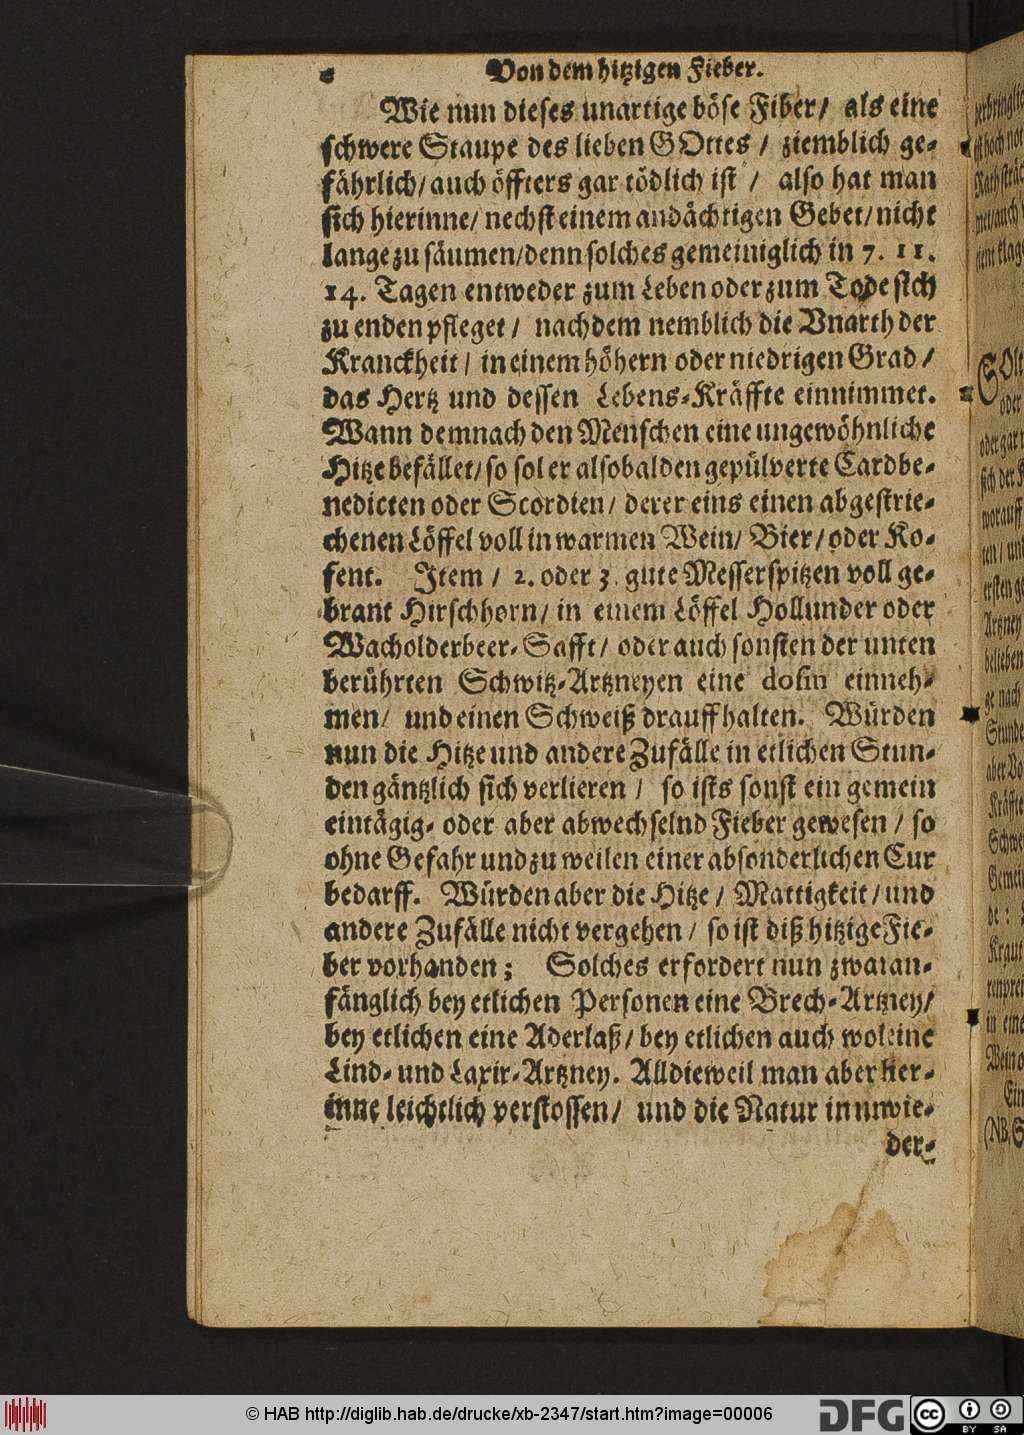 Von dem hitzigen Fieber.
Wie nun dieses unartige böse Fiber/ als eine
schwere Staupe des lieben GOttes / ziemblich ge-
fährlich/ auch öffters gar tödlich ist / also hat man
sich hierinne/ nechst einem andächtigen Gebet/ nicht
lange zu säumen/denn solches gemeiniglich in 7. 11.
14. Tagen entweder zum Leben oder zum Tode sich
zu enden pfleget / nachdem nemblich die Vnarth der
Kranckheit / in einem höhern oder niedrigen Grad /
das Hertz und dessen Lebens-Kräffte einnimmet.
Wann demnach den Menschen eine ungewöhnliche
Hitze befället/ so sol er alsobalden gepülverte Cardbe-
nedicten oder Scordien / derer eins einen abgestrie-
chenen Löffel voll in warmen Wein/ Bier / oder Ko-
fent. Item / 2. oder 3. gute Messerspitzen voll ge-
brant Hirschhorn/ in einem Löffel Hollunder oder
Wacholderbeer-Safft / oder auch sonsten der unten
berührten Schwitz-Artzneyen eine dosin einneh-
men/ und einen Schweiß drauff halten. Würden
nun die Hitze und andere Zufälle in etlichen Stun-
den gäntzlich sich verlieren / so ists sonst ein gemein
eintägig- oder aber abwechselnd Fieber gewesen / so
ohne Gefahr und zu weilen einer absonderlichen Cur
bedarff. Würden aber die Hitze / Mattigkeit / und
andere Zufälle nicht vergehen / so ist diß hitzige Fie-
ber vorhanden ; Solches erfordert nun zwar an-
fänglich bey etlichen Personen eine Brech-Artzney/
bey etlichen eine Aderlaß / bey etlichen auch wol eine
Lind- und Laxir-Artzney. Alldieweil man aber hier-
inne leichtlich verstossen/ und die Natur in unwie-
der-
© HAB http://diglib.hab.de/drucke/xb-2347/start.htm?image=00006
DFG
CC BY SA